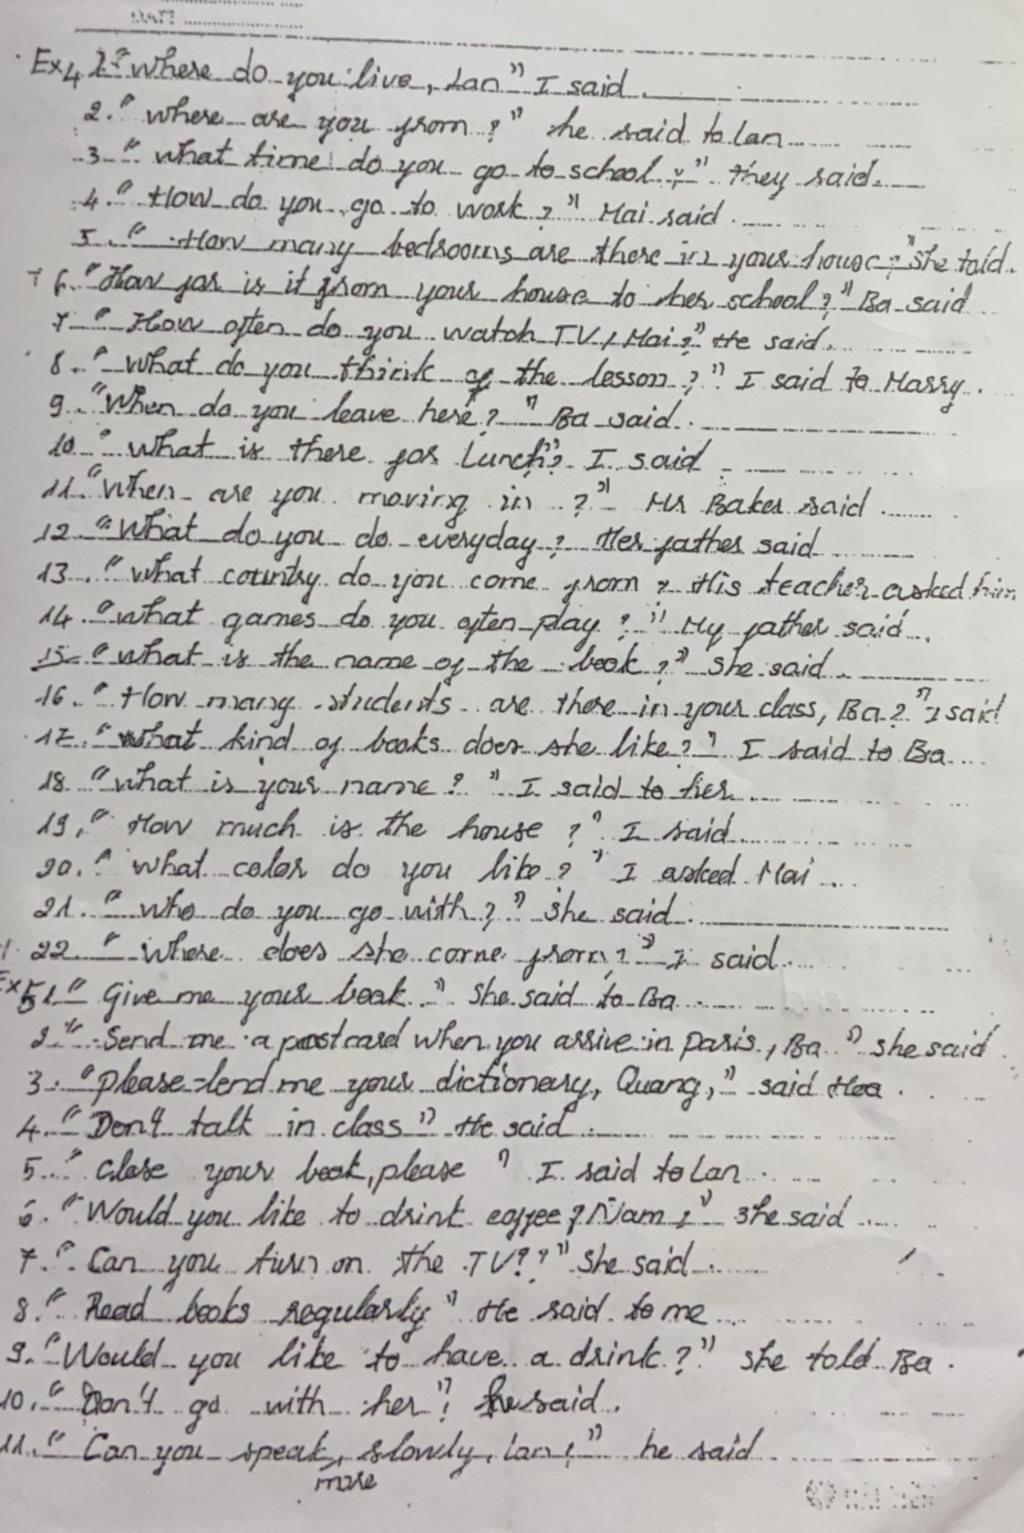 Ex4 1. "Where do you live, Lan" I said.
2. "where are you from?" he said to Lan
3. "what time do you go to school?" they said.
4. "How do you go to work?" Mai said.
5. "How many bedrooms are there in your house?" she told.
6. "How far is it from your house to her school?" Ba said
7. "How often do you watch TV, Mai?" He said.
8. "What do you think of the lesson?" I said to Marry.
9. "When do you leave here?" Ba said.
10. "What is there for Lunch"? I said
11. "When are you moving in?" Mr Baker said
12. "What do you do everyday? Her father said
13. "what country do you come from? His teacher asked him
14. "what games do you often play?" My father said.
15. "what is the name of the book?" she said
16. "How many students are there in your class, Ba?" I said
17. "what kind of books does she like?" I said to Ba
18. "what is your name?" I said to her
19. "How much is the house?" I said
20. "What color do you like?" I asked Mai
21. "who do you go with?" she said.
22. "Where does she come from?" I said.
Ex5 1. "Give me your book." she said to Ba
2. "Send me a postcard when you arrive in paris, Ba" she said.
3. "please lend me your dictionary, Quang," said Hoa.
4. "Don't talk in class" He said
5. "Close your book, please" I said to Lan.
6. "Would you like to drink coffee, Nam?" she said
7. "Can you turn on the TV??" She said.
8. "Read books regularly" He said to me
9. "Would you like to have a drink?" she told Ba.
10. "Don't go with her"! he said.
11. "Can you speak, slowly, Lan?" he said
more